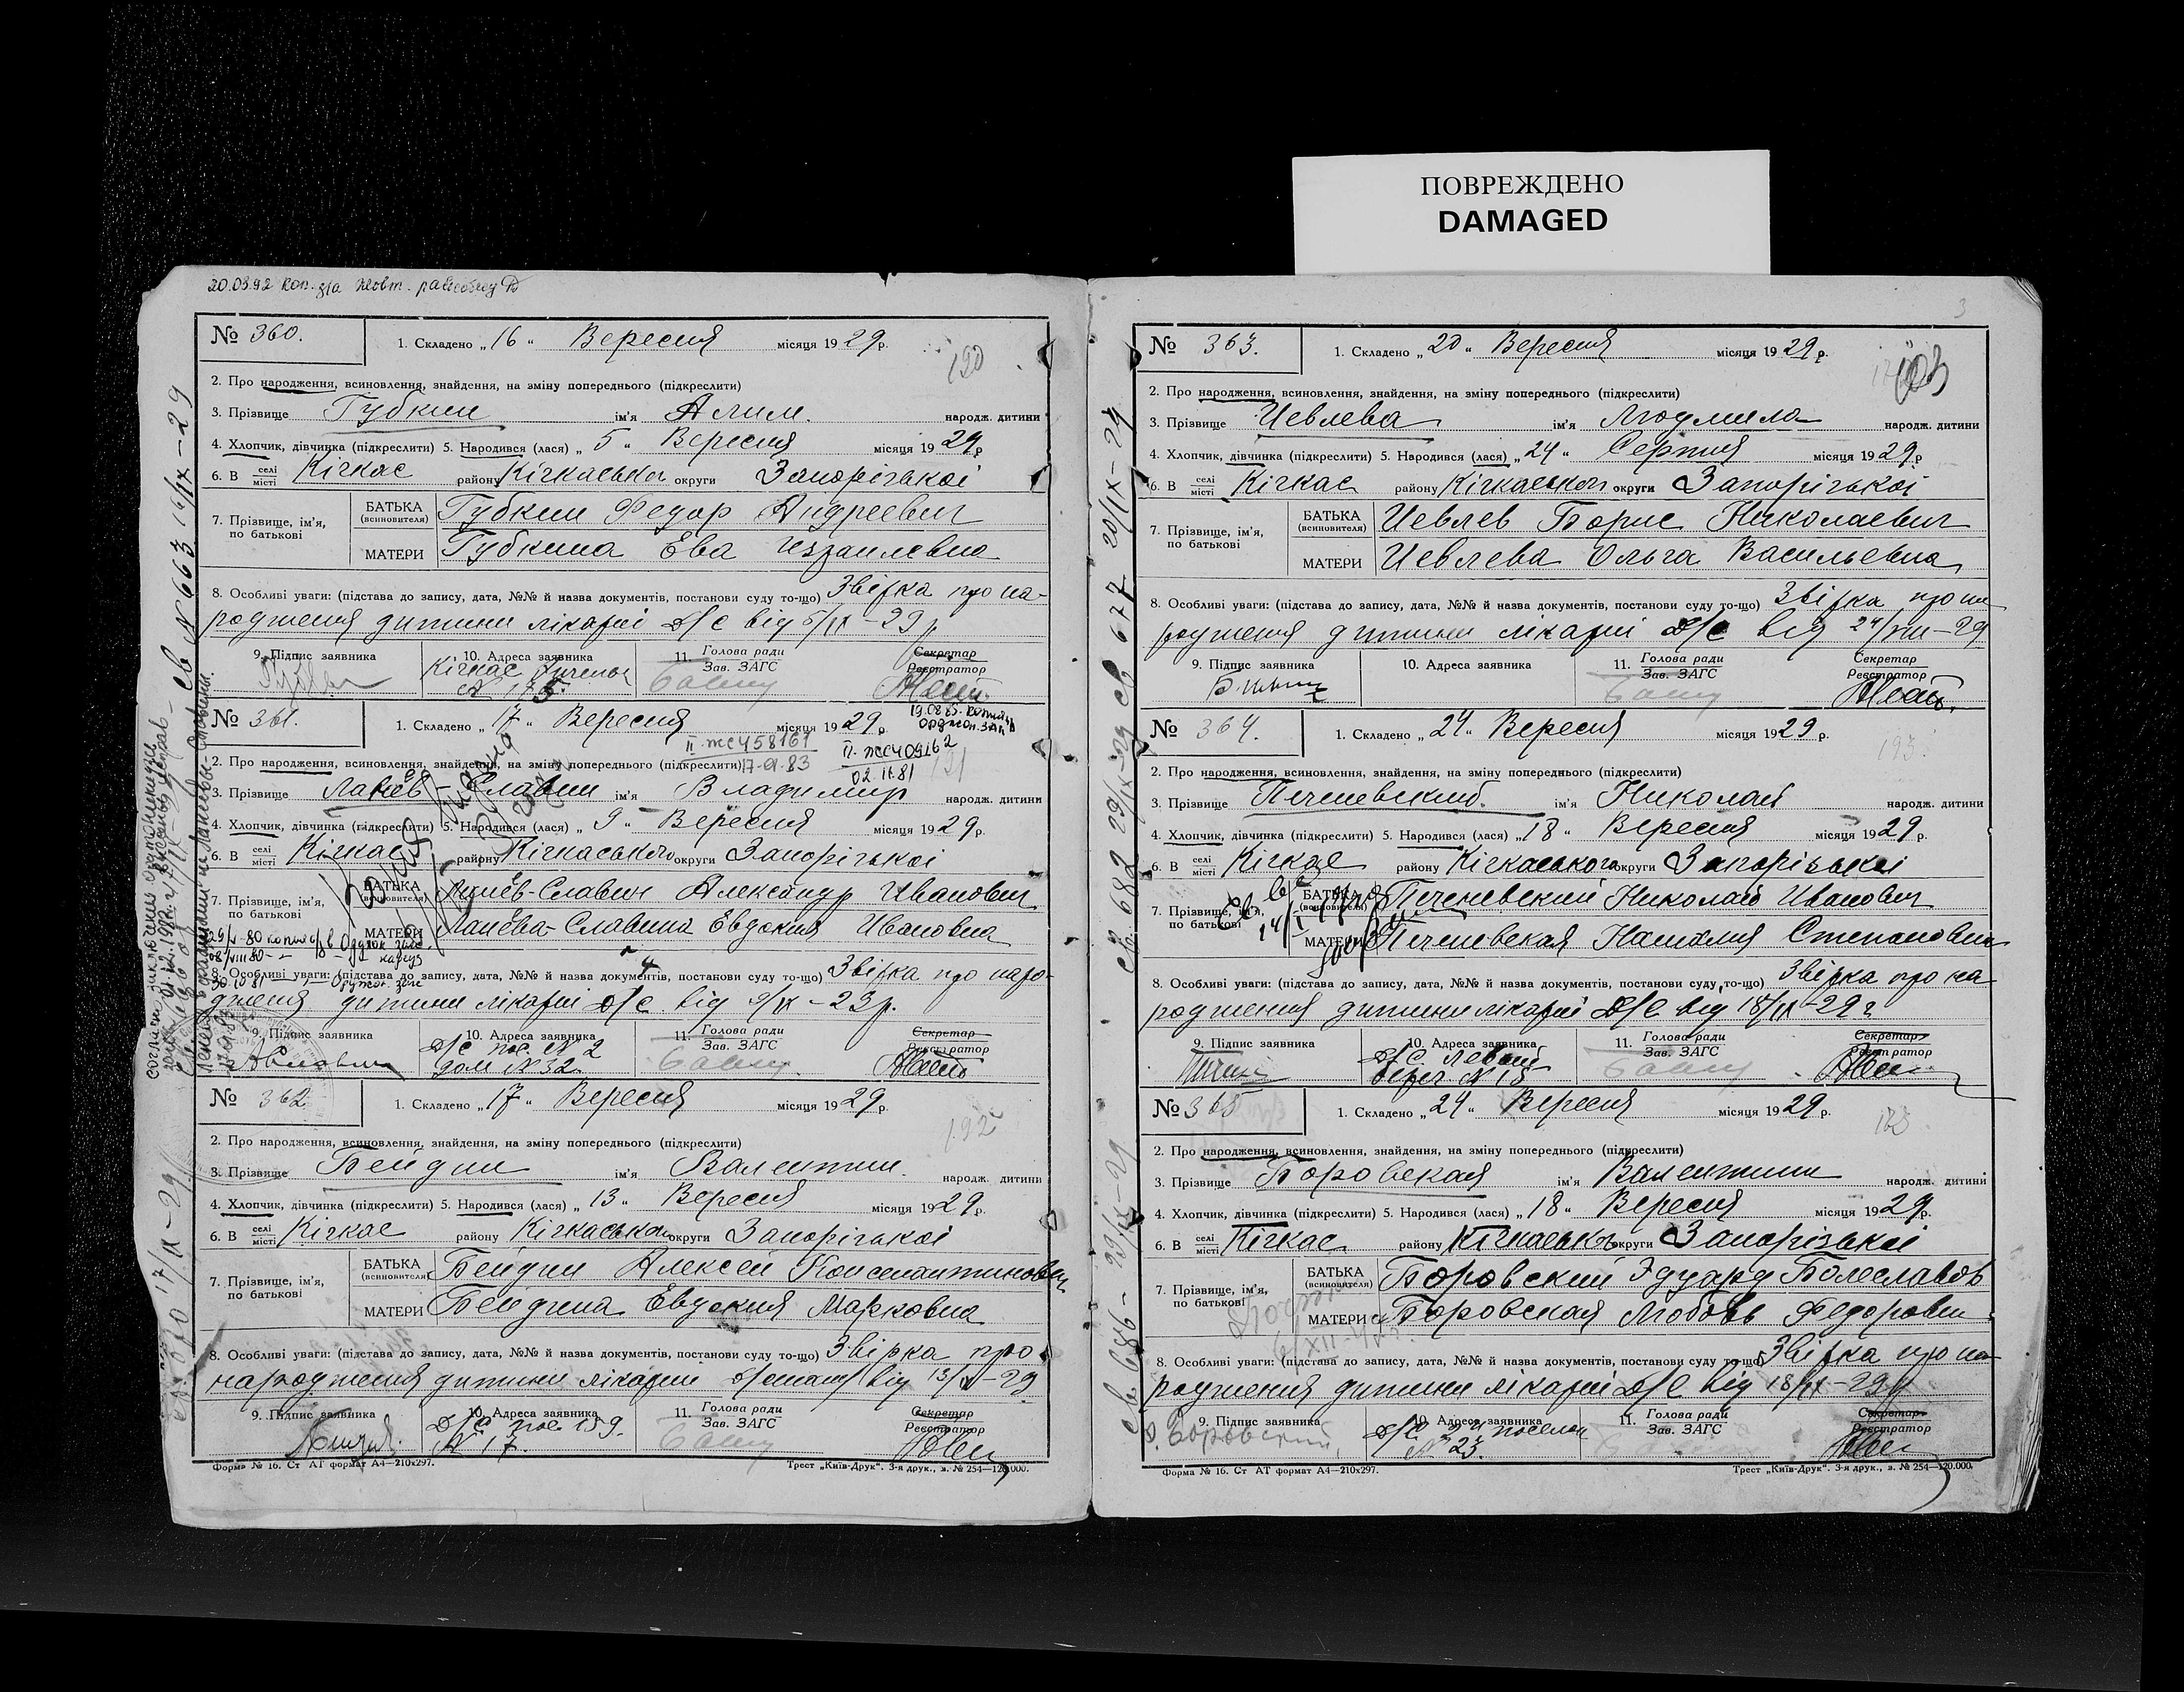 ПОВРЕЖДЕНО
DAMAGED
20.03.92 коп. з/а Жовт.
№ 360.
1. Складено „ 16 “ Вересня місяця 1929 р.
190
2. Про народження, всиновлення, знайдення, на зміну попереднього (підкреслити)
3. Прізвище Губкин ім'я Алим. народж. дитини
4. Хлопчик, дівчинка (підкреслити) 5. Народився (лася) „ 5 “ Вересня місяця 1929 р
6. В селі місті Кічкас району Кічкаськог округи Запорізькоі
7. Прізвище, ім'я, по батькові
БАТЬКА (всиновителя) Губкин Федор Андреевич
МАТЕРИ Губкина Ева Изралевна
8. Особливі уваги: (підстава до запису, дата, №№ й назва документів, постанови суду то-що) Звірка про на-
родження дитини лікарні Д/С від 5/IX-29 р
9. Підпис заявника
10. Адреса заявника Кічкас
11. Голова ради Зав. ЗАГС
Секретар Реєстратор
св № 663 16/IX-29
№ 361.
1. Складено „ 17 “ Вересня місяця 1929 р.
19.08.85.
II-ЖС 458161
17-01.83
II-ЖС 409162
02.11.81
2. Про народження, всиновлення, знайдення, на зміну попереднього (підкреслити)
3. Прізвище Ланёв-Славин ім'я Владимир народж. дитини
4. Хлопчик, дівчинка (підкреслити) 5. Народився (лася) „ 9 “ Вересня місяця 1929 р.
6. В селі місті Кічкас району Кічкаського округи Запорізькоі
7. Прізвище, ім'я, по батькові
БАТЬКА (всиновителя) Ланёв-Славин Александр Иванович
МАТЕРИ Ланёва-Славина Евдокия Ивановна
8. Особливі уваги: (підстава до запису, дата, №№ й назва документів, постанови суду то-що) Звірка про наро-
дження дитини лікарні Д/С. від 9/IX-23 р.
9. Підпис заявника
10. Адреса заявника Д/С пос. № 2
дом № 32.
11. Голова ради Зав. ЗАГС
Секретар Реєстратор
№ 362.
1. Складено „ 17 “ Вересня місяця 1929 р.
192
2. Про народження, всиновлення, знайдення, на зміну попереднього (підкреслити)
3. Прізвище Бейдин ім'я Валентин. народж. дитини
4. Хлопчик, дівчинка (підкреслити) 5. Народився (лася) „ 13 “ Вересня місяця 1929 р.
6. В селі місті Кічкас району Кічкаськог округи Запорізькоі
7. Прізвище, ім'я, по батькові
БАТЬКА (всиновителя) Бейдин Алексей Константинович
МАТЕРИ Бейдина Евдокия Марковна
8. Особливі уваги: (підстава до запису, дата, №№ й назва документів, постанови суду то-що) Звірка про
народження дитини лікарні від 13/IX-29
9. Підпис заявника
10. Адреса заявника Д/С пос. 159.
№ 17.
11. Голова ради Зав. ЗАГС
Секретар Реєстратор
Форма № 16. Ст АТ формат А4—210х297.
Трест „Київ-Друк“. 3-я друк., з. № 254—120.000.
3
№ 363.
1. Складено „ 20 “ Вересня місяця 1929 р.
2. Про народження, всиновлення, знайдення, на зміну попереднього (підкреслити)
3. Прізвище Иевлева ім'я Людмила народж. дитини
4. Хлопчик, дівчинка (підкреслити) 5. Народився (лася) „ 24 “ Серпня місяця 1929 р
6. В селі місті Кічкас району Кічкаськог округи Запорізькоі
7. Прізвище, ім'я, по батькові
БАТЬКА (всиновителя) Иевлев Борис Николаевич
МАТЕРИ Иевлева Ольга Васильевна
8. Особливі уваги: (підстава до запису, дата, №№ й назва документів, постанови суду то-що) Звірка про на
родження дитини лікарні Д/С від 24/VIII-29
9. Підпис заявника
10. Адреса заявника
11. Голова ради Зав. ЗАГС
Секретар Реєстратор
№ 364.
1. Складено „ 24 “ Вересня місяця 1929 р.
193.
2. Про народження, всиновлення, знайдення, на зміну попереднього (підкреслити)
3. Прізвище Печеневский. ім'я Николай народж. дитини
4. Хлопчик, дівчинка (підкреслити) 5. Народився (лася) „ 18 “ Вересня місяця 1929 р.
6. В селі місті Кічкас району Кічкаського округи Запорізькоі
7. Прізвище, ім'я, по батькові
БАТЬКА (всиновителя) Печеневский Николай Иванович
МАТЕРИ Печеневская Наталия Степановна
8. Особливі уваги: (підстава до запису, дата, №№ й назва документів, постанови суду то-що) Звірка про на
родження дитини лікарні Д/С від 18/IX-29 г.
9. Підпис заявника
10. Адреса заявника Д/С левый
берег № 15
11. Голова ради Зав. ЗАГС
Секретар Реєстратор
св. 682 29/IX-29 св 677 20/IX-29
№ 365
1. Складено „ 24 “ Вересня місяця 1929 р.
2. Про народження, всиновлення, знайдення, на зміну попереднього (підкреслити)
3. Прізвище Боровская ім'я Валентина народж. дитини
4. Хлопчик, дівчинка (підкреслити) 5. Народився (лася) „ 18 “ Вересня місяця 1929 р.
6. В селі місті Кічкас району Кічкаськог округи Запорізькоі
7. Прізвище, ім'я, по батькові
БАТЬКА (всиновителя) Боровский Эдуард Болеславов
МАТЕРИ Боровская Любовь Федоровн
8. Особливі уваги: (підстава до запису, дата, №№ й назва документів, постанови суду то-що) Звірка про на
родження дитини лікарні Д/С від 18/IX-29
9. Підпис заявника Боровский
10. Адреса заявника Д/С поселок
№ 23.
11. Голова ради Зав. ЗАГС
Секретар Реєстратор
Форма № 16. Ст АТ формат А4—210х297.
Трест „Київ-Друк“. 3-я друк., з. № 254—120.000.